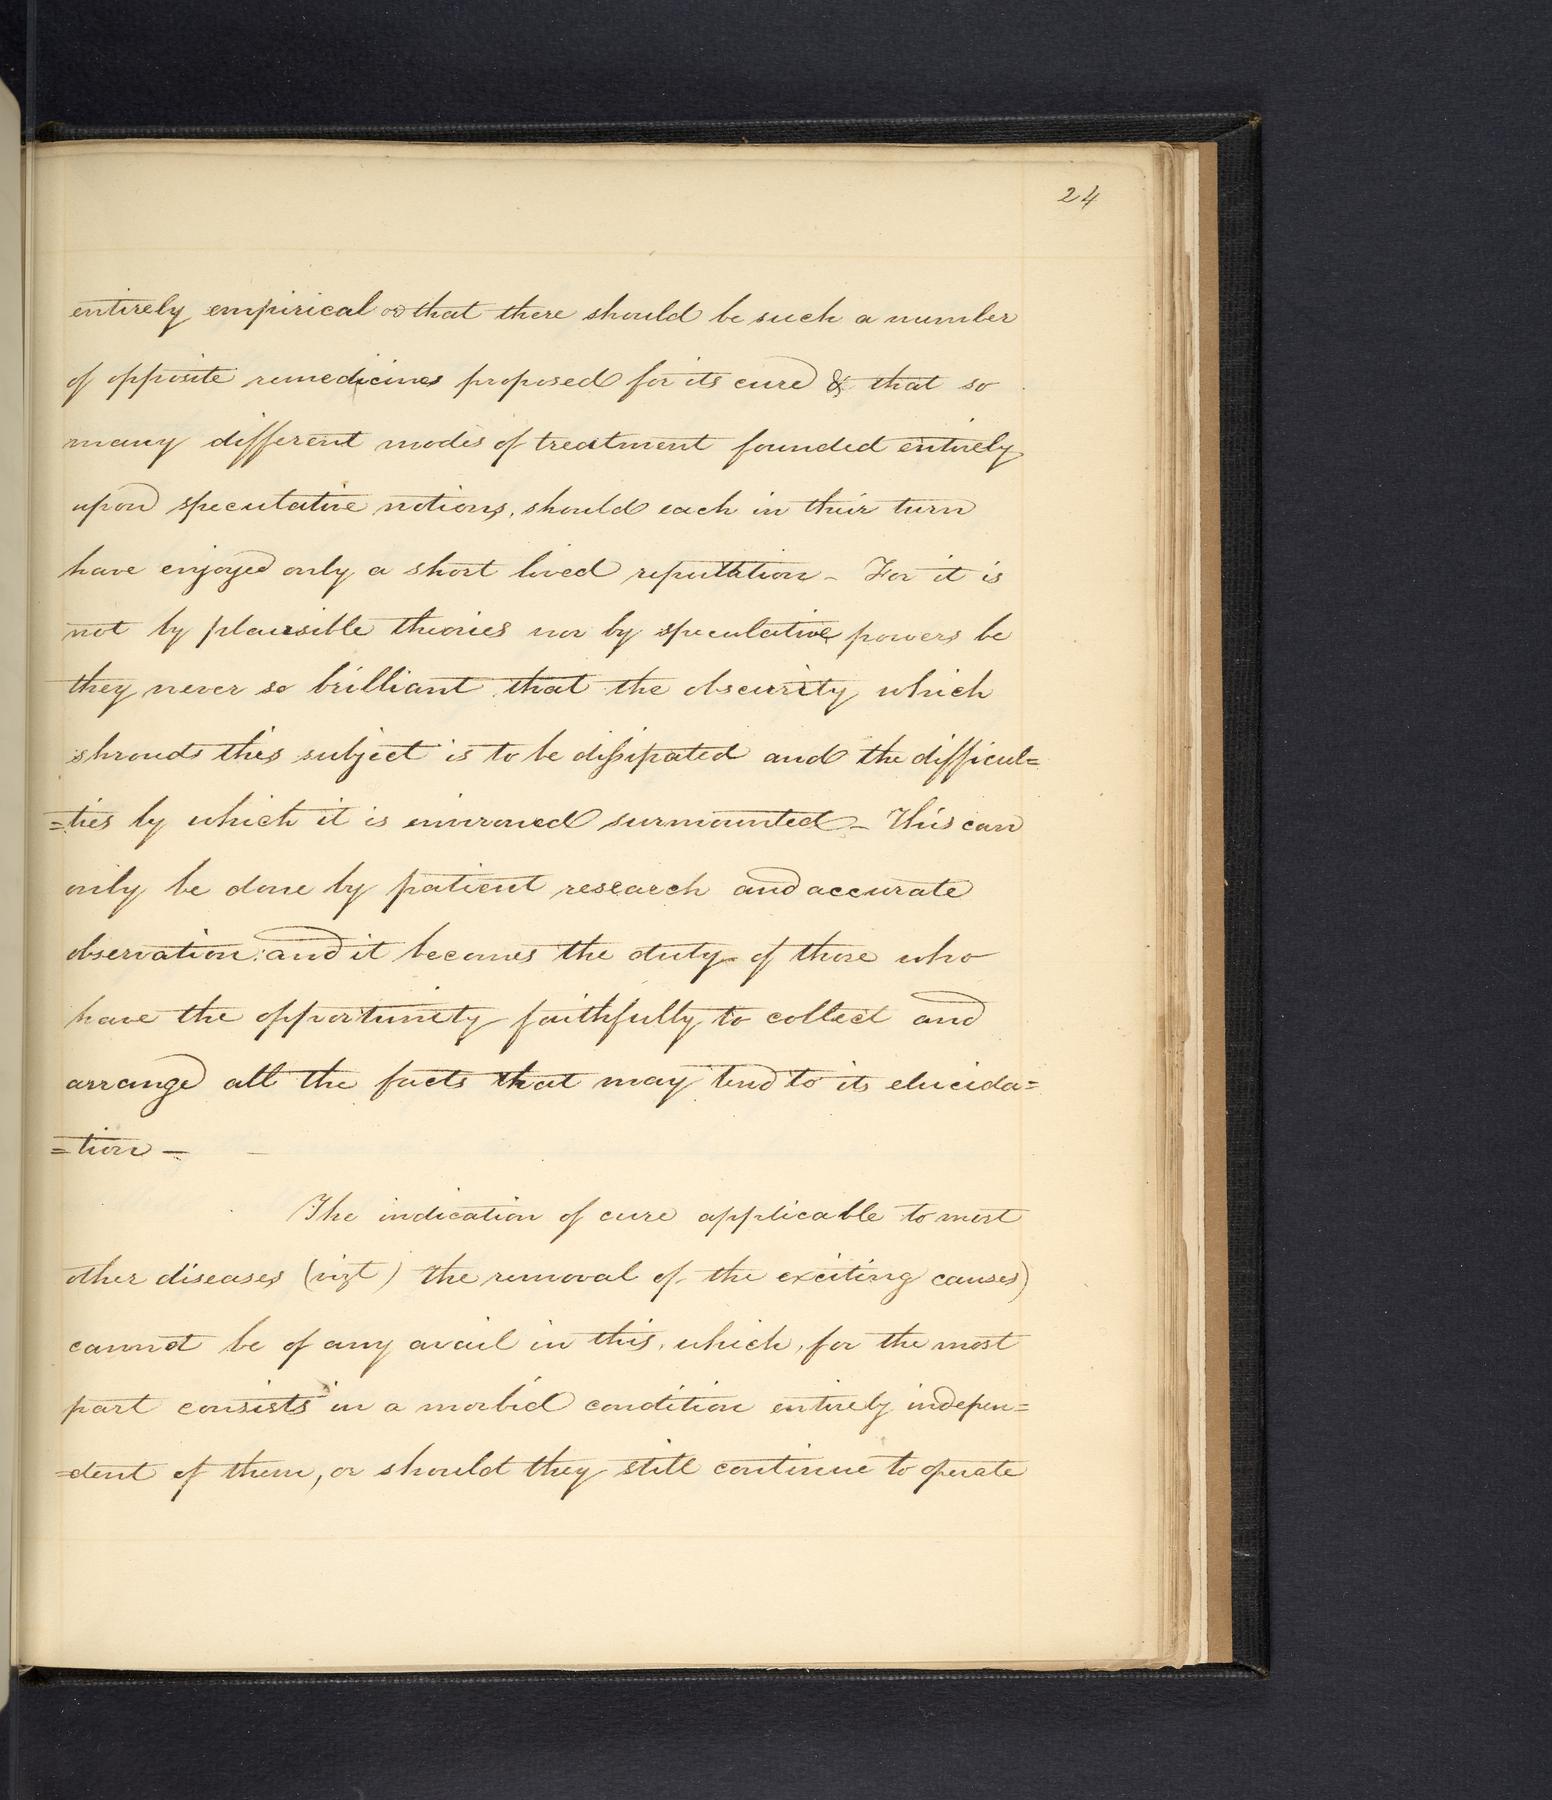 24
entirely empirical or that there should be such a number
of opposite remedicines proposed for its cure & that so
many different modes of treatment founded entirely
upon speculative notions, should each in their turn
have enjoyed only a short lived reputation - For it is
not by plausible theories nor by speculative powers be
they never so brilliant that the obscurity which
shrouds this subject is to be dissipated and the difficul=
=ties by which it is environed surmounted - This can
only be done by patient research and accurate
observation: and it becomes the duty of those who
have the opportunity faithfully to collect and
arrange all the facts that may tend to its elucida=
=tion -
The indication of cure applicable to most
other diseases (vizt) the removal of the exciting causes)
cannot be of any avail in this, which, for the most
part consists in a morbid condition entirely indepen=
=dent of them, or should they still continue to operate